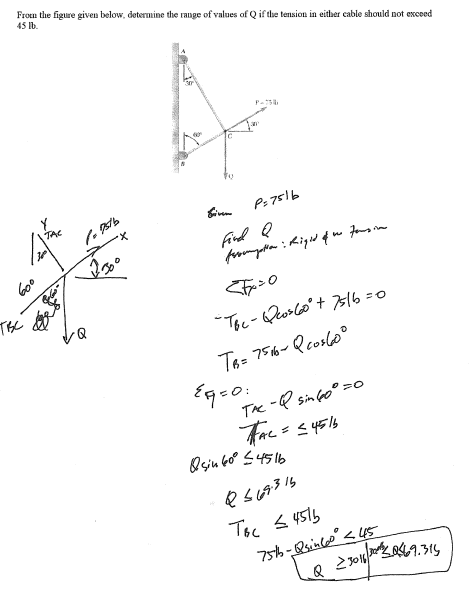 From the figure given below, determine the range of values of Q if the tension in either cable should not exceed
45 lb.
A
30°
P=75 lb
30°
60°
C
B
Q
Given P=75lb
Find Q
Assumption: Rigid
ΣFx=0
-TBC-Qcos60°+75lb=0
TB=75lb-Qcos60°
ΣFy=0:
TAC-Q sin60°=0
TAC=≤45lb
Qsin60°≤45lb
Q≤69.3 lb
TBC ≤45lb
75lb-Qsin60°<45
Q ≥30lb
≤Q≤69.3lb
Y
TAC
P=75lb
X
30
30°
60°
TBC
Q